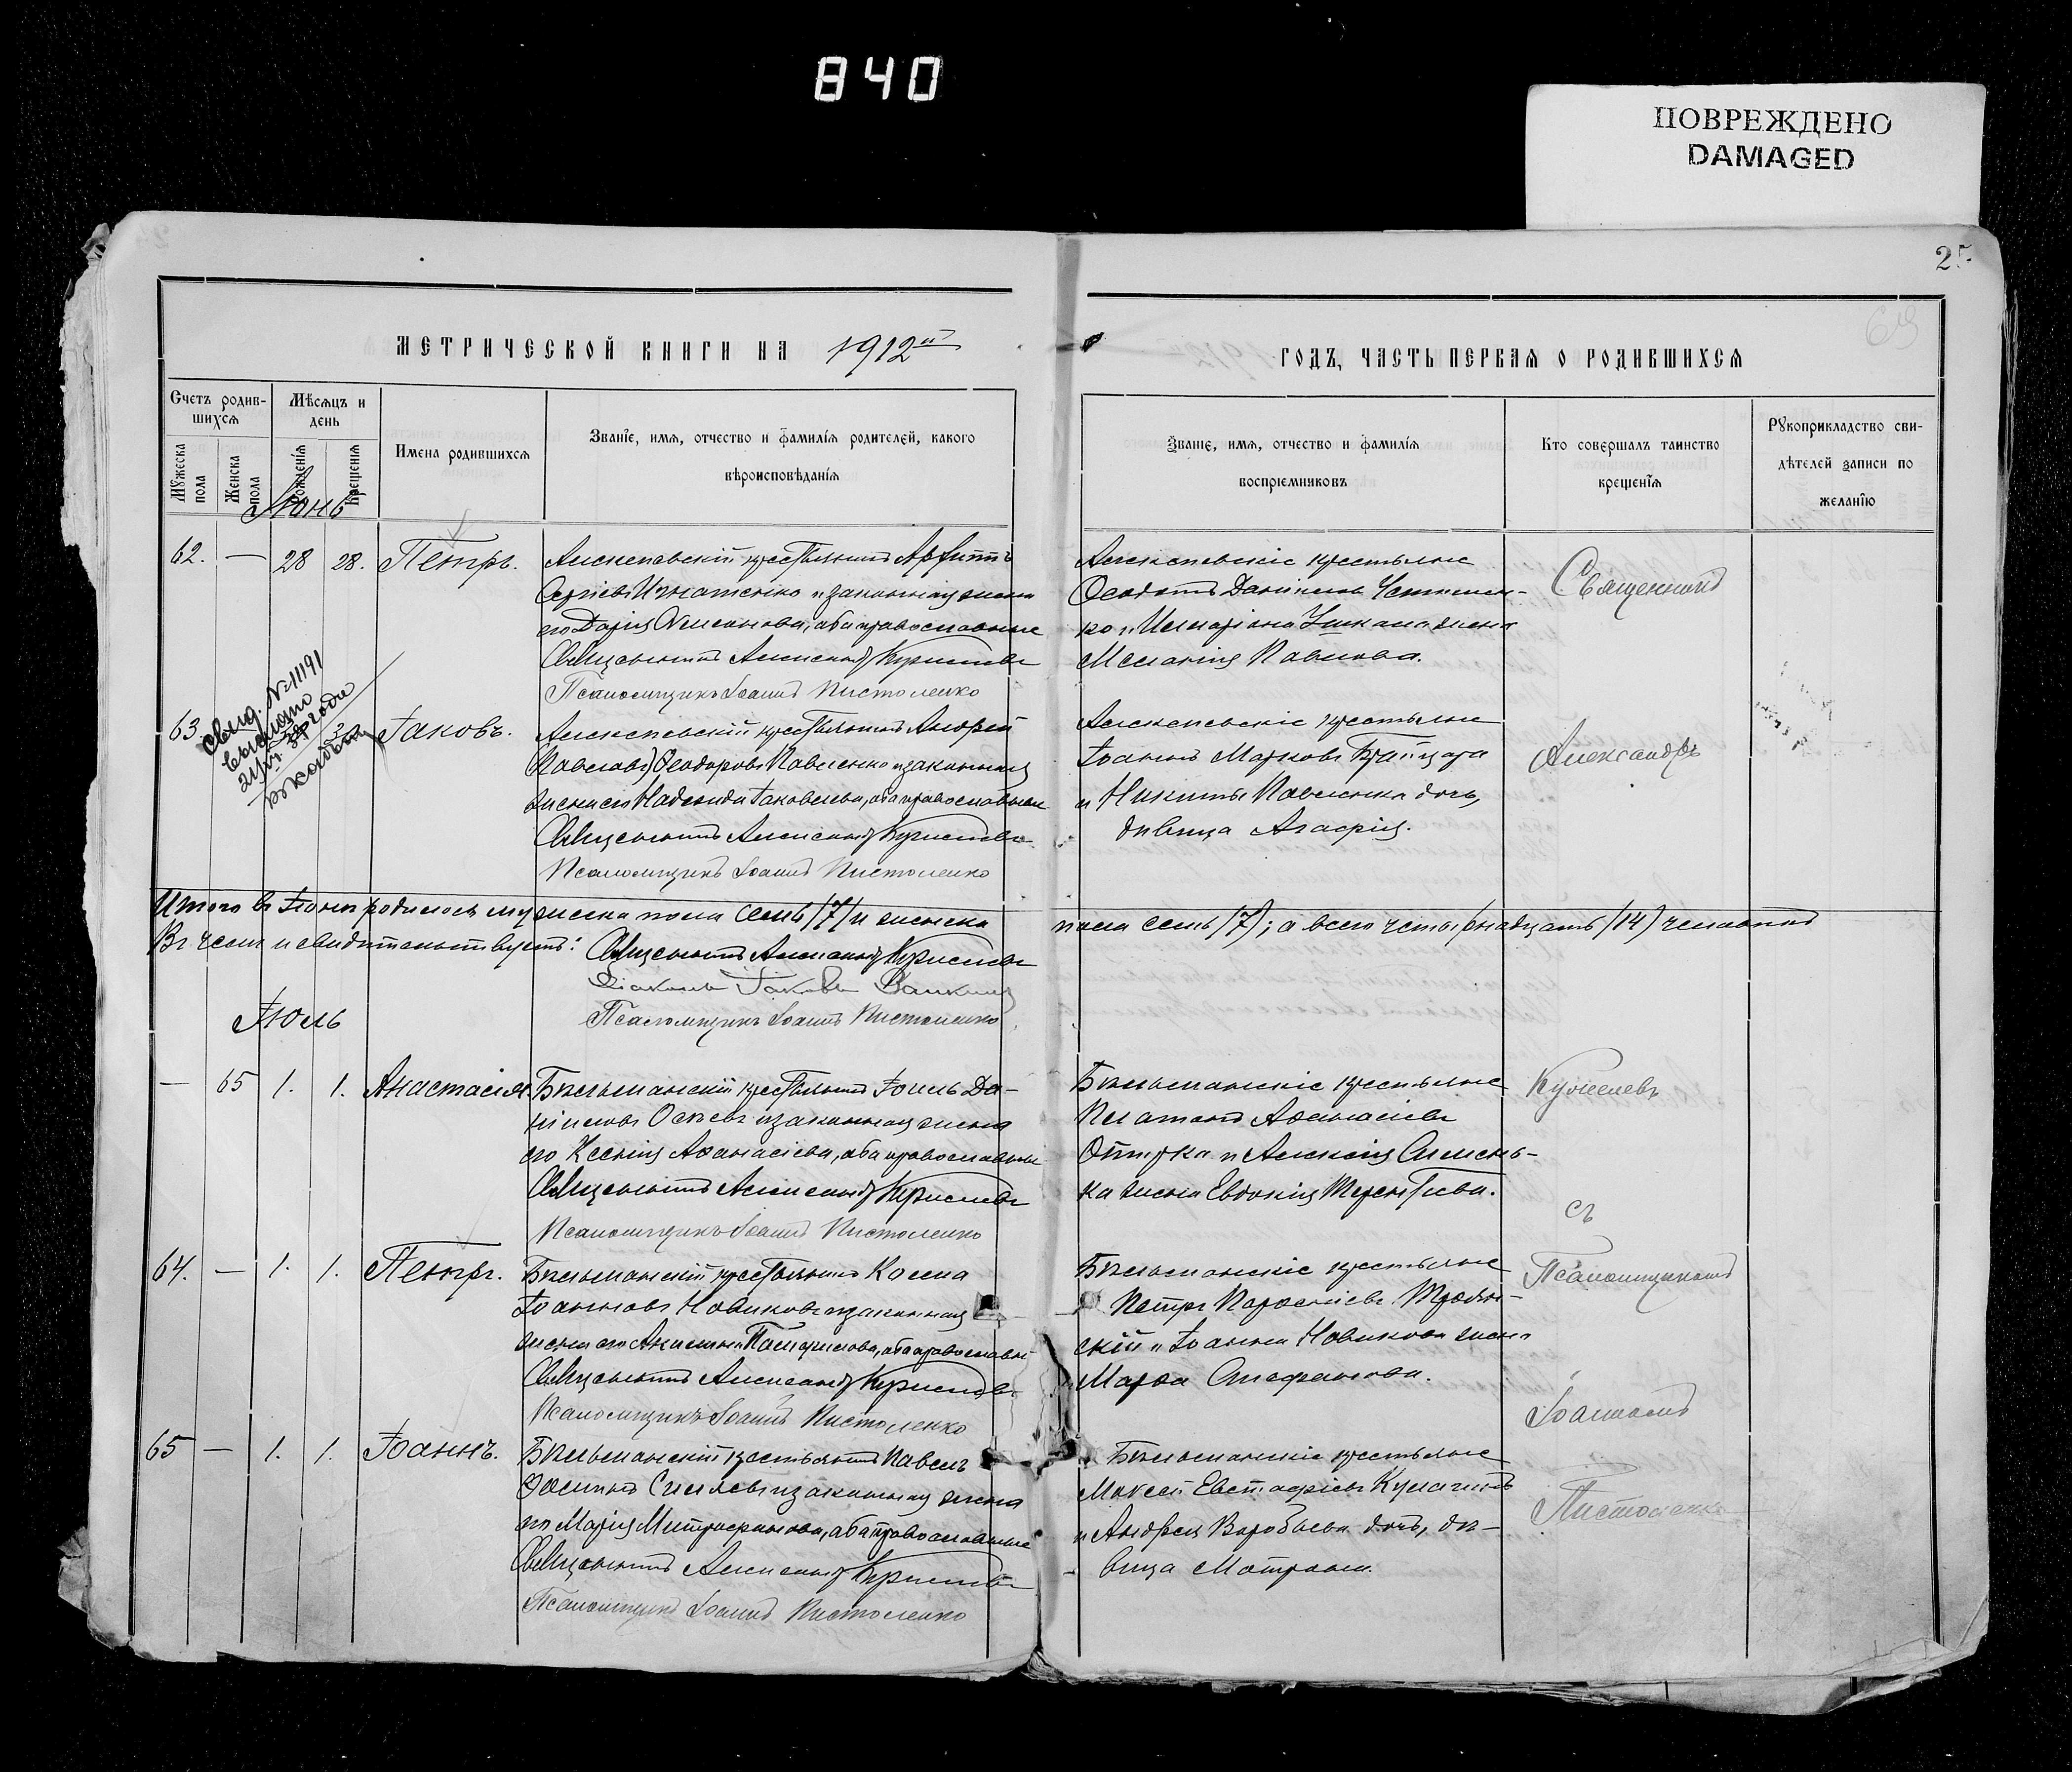 840
ПОВРЕЖДЕНО
DAMAGED
25
МЕТРИЧЕСКОЙ КНИГИ НА 1912й
ГОДЪ, ЧАСТЬ ПЕРВАЯ О РОДИВШИХСЯ
Счетъ родив-
шихся
Мужеска пола
Женска пола
Мѣсяцъ и
день
Рожденія
Крещенія
Имена родившихся
Званіе, имя, отчество и фамилія родителей, какого
вѣроисповѣданія
Званіе, имя, отчество и фамилія
воспріемниковъ
Кто совершалъ таинство
крещенія
Рукоприкладство сви-
дѣтелей записи по
желанію
Іюнь
62. — 28 28. Петръ.
Алексѣевскій крестьянинъ
Сергіевъ Игнатенко и законная жена
его Дарія оба православные
Священникъ Александръ
Псаломщикъ Іоаннъ Пистоленко
Алексѣевскіе крестьяне
Ѳеодотъ Даніиловъ
жена
Меланія Павлова.
Священникъ
Свид. №11191
выдано
63. 30 Іаковъ.
Алексѣевскій крестьянинъ Андрей
(Павловъ) Ѳеодоровъ Павленко и законная
жена его Надежда Іаковлева, оба православные
Священникъ Александръ
Псаломщикъ Іоаннъ Пистоленко
Алексѣевскіе крестьяне
Іоаннъ Марковъ
и Никиты Павленка дочь,
дѣвица Агафія.
Александръ
Итого въ Іюнѣ родилось мужеска пола семь /7/ и женска
пола семь /7/; а всего четырнадцать /14/ человѣкъ
Въ чемъ и свидѣтельствуетъ: Священникъ Александръ
Діаконъ Іаковъ
Псаломщикъ Іоаннъ Пистоленко
Іюль
— 65 1. 1. Анастасія.
Бѣльманскій крестьянинъ Іоиль Да-
ніиловъ и законная жена
его Ксенія Аѳанасіева, оба православные
Священникъ Александръ
Псаломщикъ Іоаннъ Пистоленко
Бѣльманскіе крестьяне
Платонъ Аѳанасіевъ
и Алексія
жена Евдокія Терентіева.
съ
64. — 1. 1. Петръ.
Бѣльманскій крестьянинъ Косма
Іоанновъ Новиковъ и законная
жена его Акилина оба православные
Священникъ Александръ
Псаломщикъ Іоаннъ Пистоленко
Бѣльманскіе крестьяне
Петръ
скій и Іоанна Новикова жена
Марѳа
Псаломщикомъ
Іоанномъ
65 — 1. 1. Іоаннъ.
Бѣльманскій крестьянинъ Павелъ
и законная жена
его Марія Митрофанова, оба православные
Священникъ Александръ
Псаломщикъ Іоаннъ Пистоленко
Бѣльманскіе крестьяне
Моисей Евстафіевъ
и Андрея Воробьева дочь, дѣ-
вица Матрона.
Пистоленко